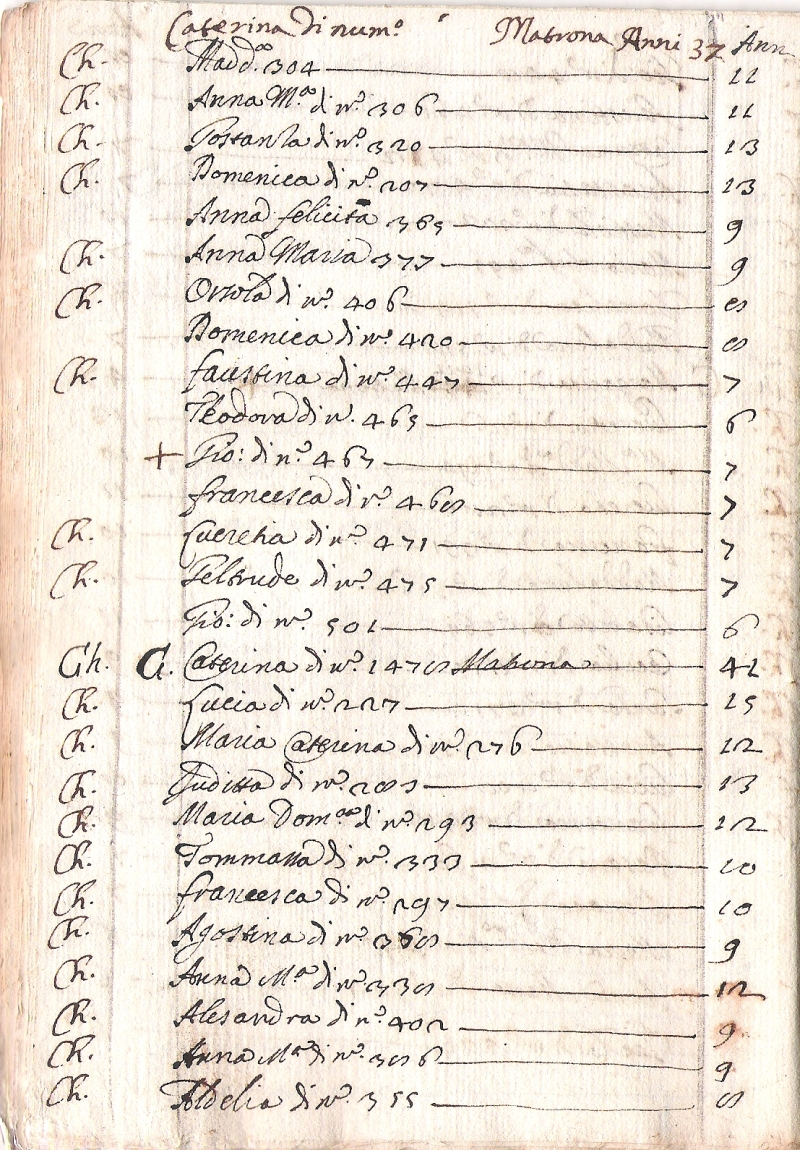 Caterina di num.º Matrona Anni 37 Ann
Ch. Madd.ª 304 11
Ch. Anna M.ª di nº. 306 11
Ch. Costanza di nº. 320 13
Ch. Domenica di nº. 207 13
Anna felicita 365 9
Ch. Anna Maria 377 9
Ch. Orsola di nº. 406 8
Domenica di nº. 420 8
Ch. faustina di nº. 447 7
Teodora di n. 465 6
+ Gio: di nº. 467 7
francesca di nº. 468 7
Ch. Lucretia di nº. 471 7
Ch. Geltrude di nº. 475 7
Gio: di nº. 501 6
Ch. G. Caterina di nº. 1478 Matrona 41
Ch. Lucia di nº. 227 15
Ch. Maria Caterina di nº. 276 12
Ch. Giuditta di nº. 13
Ch. Maria Dom.ca di nº. 293 12
Ch. Tommassa di nº. 333 10
Ch. francesca di nº. 297 10
Ch. Agostina di nº. 368 9
Ch. Anna M.ª di nº. 338 12
Ch. Alesandra di nº. 402 9
Ch. Anna M.ª di nº. 386 9
Ch. di nº. 355 8